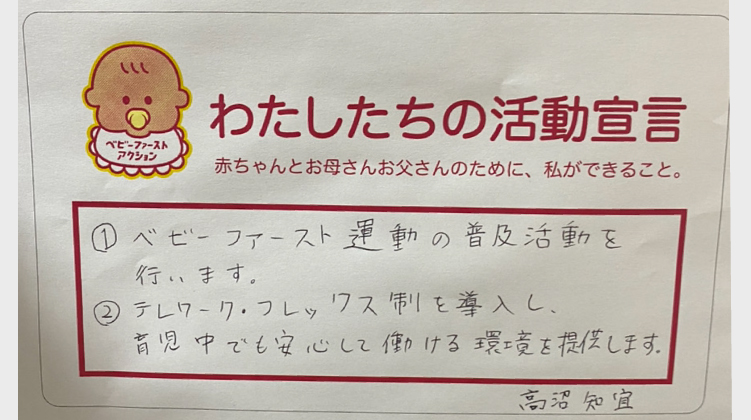 ベビーファースト
アクション
わたしたちの活動宣言
赤ちゃんとお母さんお父さんのために、私ができること。
① ベビーファースト運動の普及活動を
行います。
② テレワーク・フレックス制を導入し、
育児中でも安心して働ける環境を提供します。
高沼 知宜